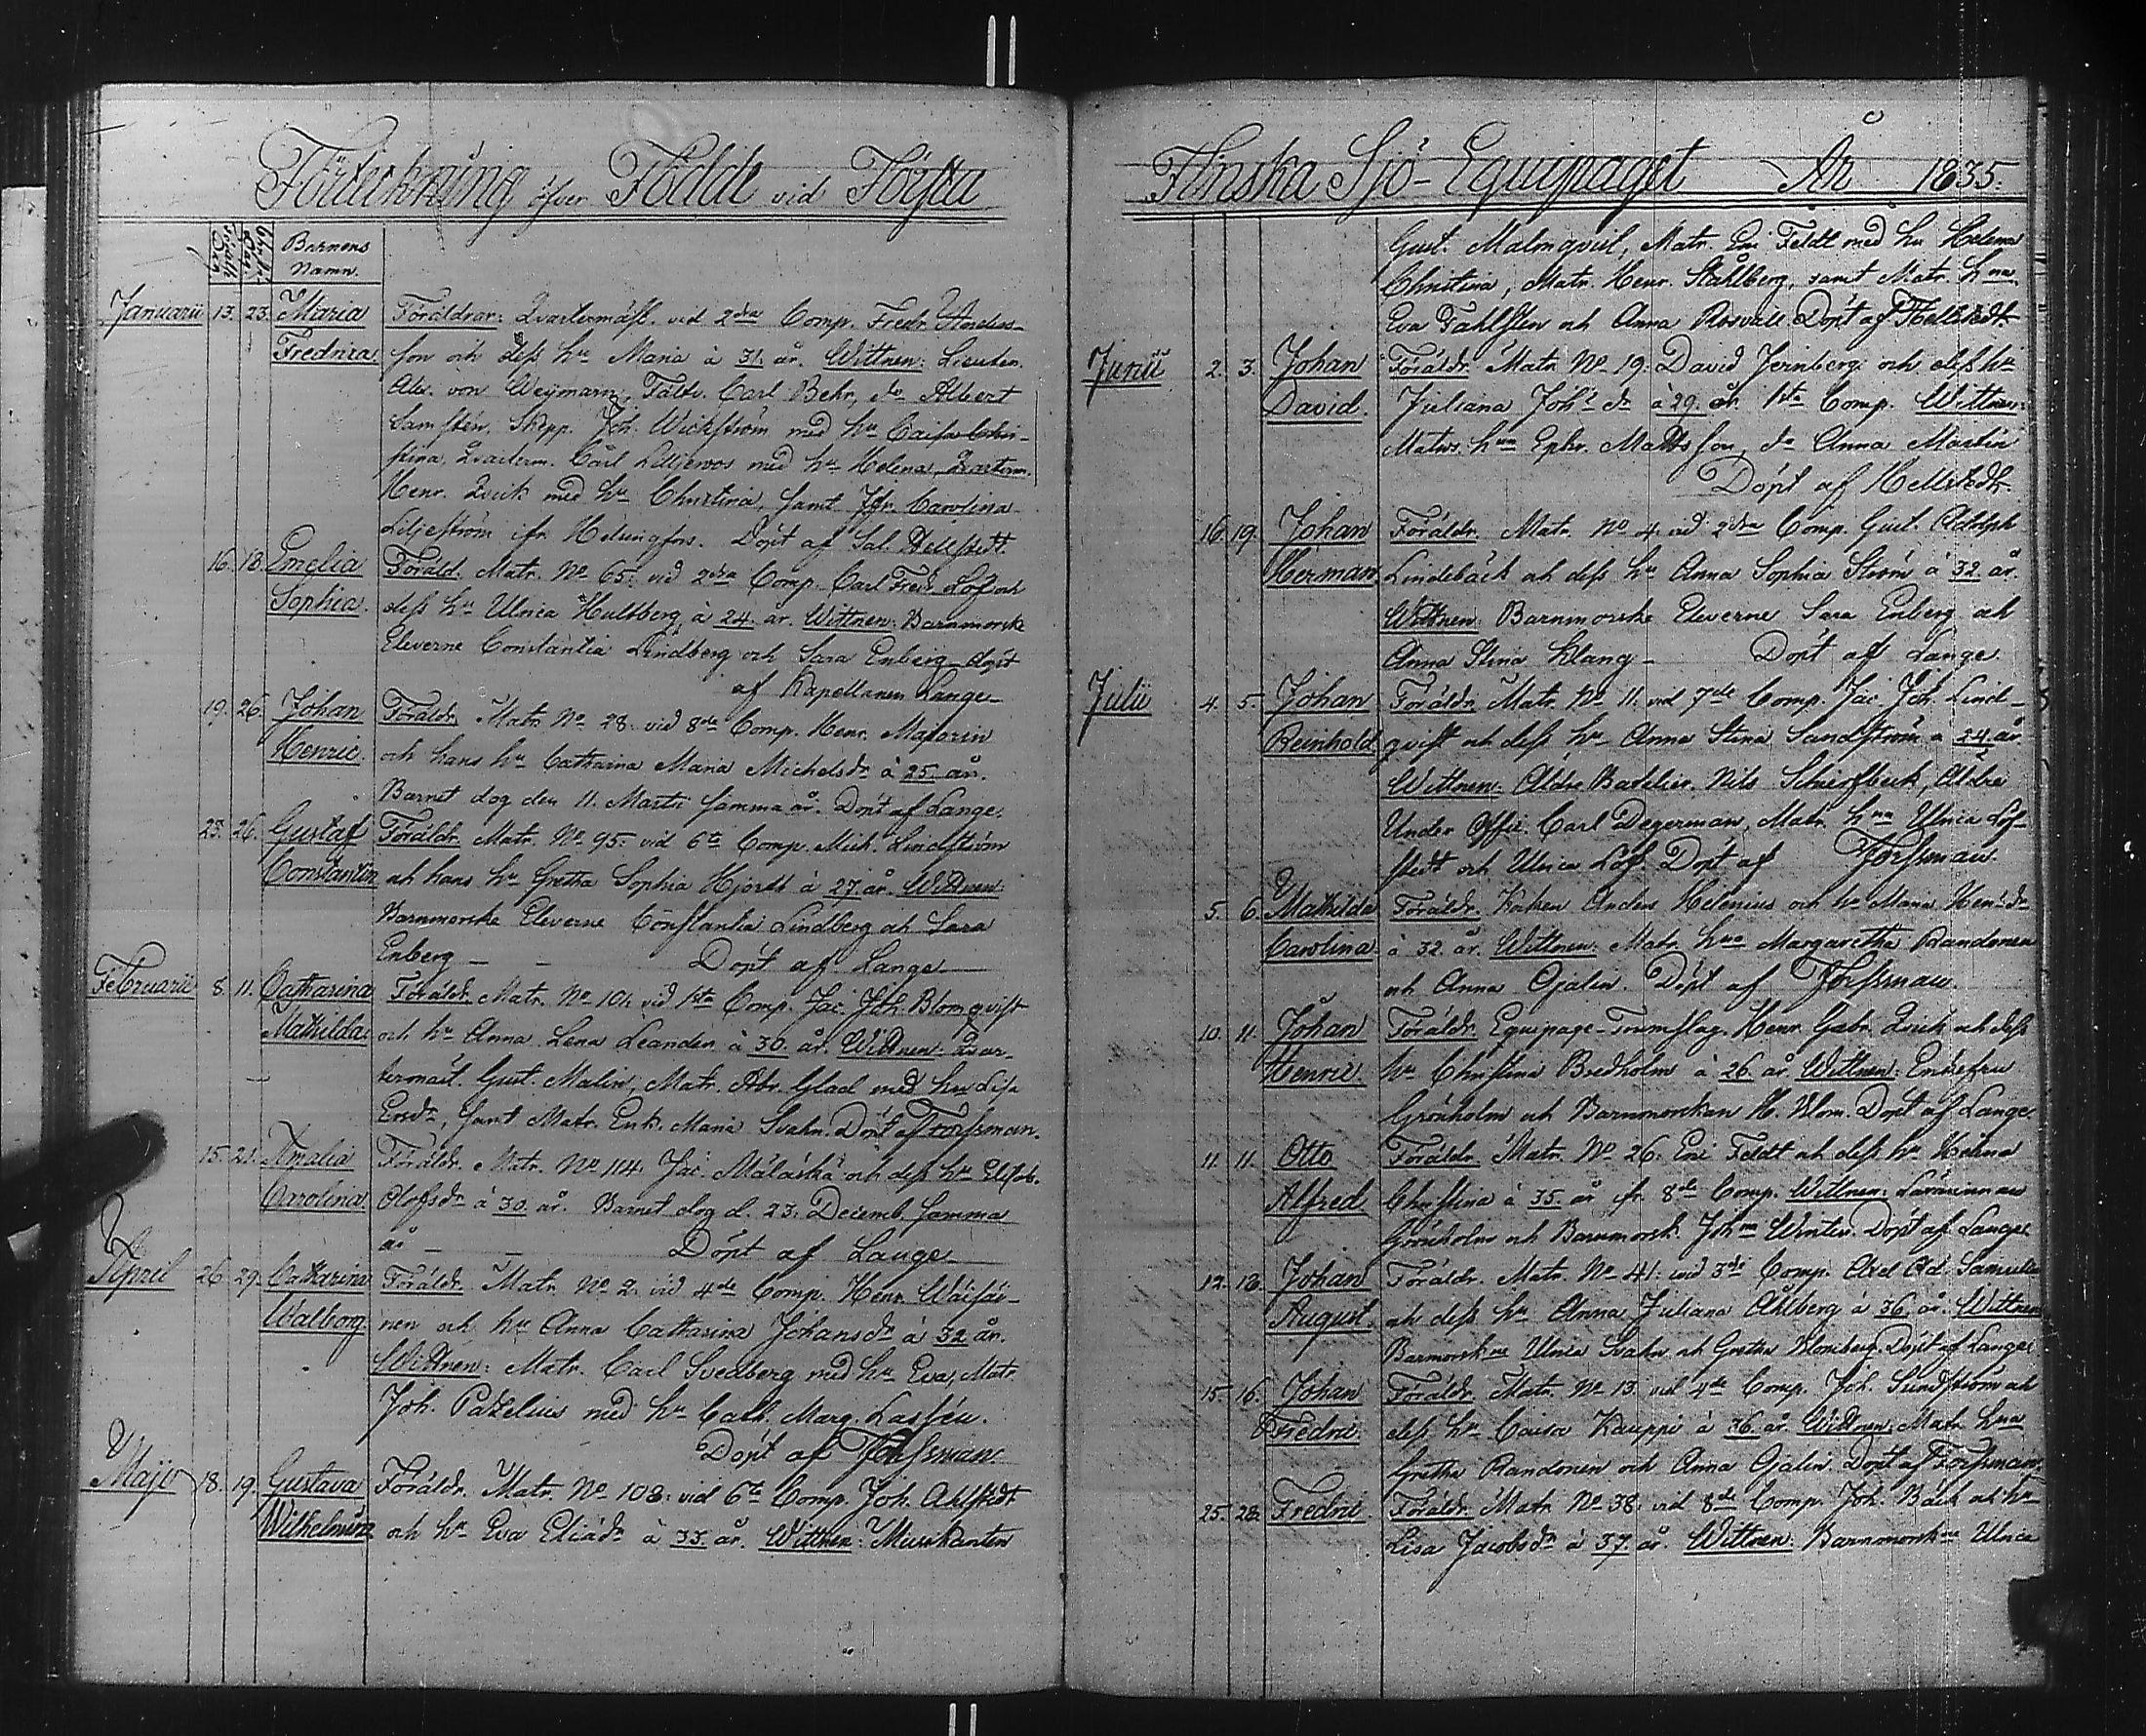 Förteckning öfver Födde vid Första
Barnens
Namn.
Januarii 13. 23. Maria Föräldrar: Qvartermäst. vid 2dra Comp. Fredr. Anders-
Fredrica. son och dess hu Maria à 31. år. Wittnen: Lieuten.
Alex. von Weymarn, Fältv. Carl Behr, do Albert
Samstén, Skepp. Joh. Wickström med hu Caisa Chri-
stina, Qvarterm. Carl Liljeroos med hu Helena, Qvarterm.
Henr. Qvick med hu Christina, samt Jfr. Carolina
Liljeström ifr. Helsingfors. Döpt af Sal. Hellstedt.
16. 18. Emelia Föräld. Matr. No 65. vid 2dra Comp. Carl Fredr. Löf och
Sophia. dess hu Ulrica Hultberg à 24. år. Wittnen: Barnmorske
Eleverne Constantia Lindberg och Sara Enberg döpt
af Kapellanen Lange
19. 26. Johan Föräldr. Matr. No 28. vid 8de Comp. Henr. Majorin
Henric. och hans hu Catharina Maria Michelsdr à 25. år.
Barnet dog den 11. Martii samma år. Döpt af Lange.
23. 26. Gustaf Föräldr. Matr. No 95. vid 6te Comp. Mich. Lindström
Constantin och hans hu Gretha Sophia Hjordt à 27. år. Wittnen:
Barnmorske Eleverne Constantia Lindberg och Sara
Enberg — — Döpt af Lange
Februarii 8. 11. Catharina Föräldr. Matr. No 101. vid 1sta Comp. Jac. Joh. Blomqvist
Mathilda. och hu Anna Lena Leander à 30. år. Wittnen: Qvar-
termäst. Gust. Malin, Matr. Abr. Glad med hu Lisa
Ersdr, samt Matr. Enk. Maria Svahn. Döpt af Forssman.
15. 21. Amalia Föräldr. Matr. No 114. Jac. Mälaskä och dess hu Elisab.
Carolina. Olofsdr à 30. år. Barnet dog d. 23. Decemb. samma
år — — Döpt af Lange
April 26. 29. Catharina Föräldr. Matr. No 2. vid 4de Comp. Henr. Wäisäi-
Walborg. nen och hu Anna Catharina Johansdr à 32. år.
Wittnen: Matr. Carl Svedberg med hu Eva, Matr.
Joh. Pazelius med hu Cath. Marg. Lassén.
Döpt af Forssman.
Maji 18. 19. Gustava Föräldr. Matr. No 108. vid 6te Comp. Joh. Ahlstedt
Wilhelmina och hu Eva Eliædr à 33. år. Wittnen: Musikanten
Finska Sjö-Equipaget År 1835.
Gust. Malmqvist, Matr. Eric Feldt med hu Helena
Christina, Matr. Henr. Ståhlberg, samt Matr. hna
Eva Fahlsten och Anna Rosvall Döpt af Hellstedt
Junii 2. 3. Johan Föräldr. Matr. No 19. David Jernberg och dess hu
David. Juliana Joh:dr à 29. år. 1sta Comp. Wittnen:
Matrs. hna Ephr. Mattsson, do Anna Martin
Döpt af Hellstedt.
16. 19. Johan Föräldr. Matr. No 4. vid 2dra Comp. Gust. Adolph
Herman Lindebäck och dess hu Anna Sophia Ström à 32. år.
Wittnen: Barnmorske Eleverne Sara Enberg och
Anna Stina Klang — Döpt af Lange
Julii 4. 5. Johan Föräldr. Matr. No 11. vid 7de Comp. Jac. Joh. Lind-
Reinhold qvist och dess hu Anna Stina Sandström à 24. år
Wittnen: Äldre Batelier. Nils Schierfbeck, Äldre
Under Offic. Carl Degerman, Matr. hna Ulrica Löf-
stedt och Ulrica Löf. Döpt af Forssman.
5. 6. Mathilda Föräldr. Kocken Anders Helenius och hu Maria Hen:dr
Carolina. à 32. år. Wittnen: Matr. hna Margaretha Randonen
och Anna Ojalin. Döpt af Forssman.
10. 11. Johan Föräldr. Equipage-Trumslag. Henr. Gabr. Qvick och dess
Henric. hu Christina Bredholm à 26. år. Wittnen: Enkefru
Grönholm och Barnmorskan H. Blom. Döpt af Lange
11. 11. Otto Föräldr. Matr. No 26. Eric Feldt och dess hu Helena
Alfred Christina à 35. år fr. 8de Comp. Wittnen: Lärarinnan
Grönholm och Barnmorsk. Johna Winter. Döpt af Lange
12. 13. Johan Föräldr. Matr. No 41. vid 3de Comp. Axel Ad. Samuels
August. och dess hu Anna Juliana Åhlberg à 36. år. Wittnen
Barnmorskne Ulrica Svahn och Gretha Blomberg. Döpt af Lange
15. 16. Johan Föräldr. Matr. No 13. vid 4de Comp. Joh. Sundström och
Fredric. dess hu Caisa Kauppi à 36. år. Wittnen: Matr. hna
Gretha Randonen och Anna Ojalin. Döpt af Forssman.
25. 28. Fredric Föräldr. Matr. No 38. vid 8de Comp. Joh. Bäck och hu
Lisa Jacobsdr à 37. år. Wittnen: Barnmorskne Ulrica